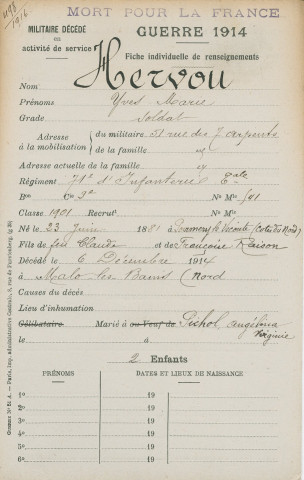 1198
1916
MORT POUR LA FRANCE
MILITAIRE DÉCÉDÉ
en
activité de service
GUERRE 1914
Fiche individuelle de renseignements
Nom Hervou
Prénoms Yves Marie
Grade Soldat
Adresse à la mobilisation du militaire 51 rue des 7 arpents
de la famille
Adresse actuelle de la famille
Régiment 71e d'Infanterie
Bon Cie 9e No Mle 541
Classe 1901 Recrutt No Mle
Né le 23 Juin 1881 (Cotes du Nord)
Fils de feu Claude et de Françoise Raison
Décédé le 6 Décembre 1914
à Malo les Bains (Nord)
Causes du décès
Lieu d'inhumation
Célibataire Marié à ou Veuf de Pichol, angélina
Virginie
le à
2 Enfants
PRÉNOMS DATES ET LIEUX DE NAISSANCE
1o 19
2o 19
3o 19
4o 19
5o 19
6o 19